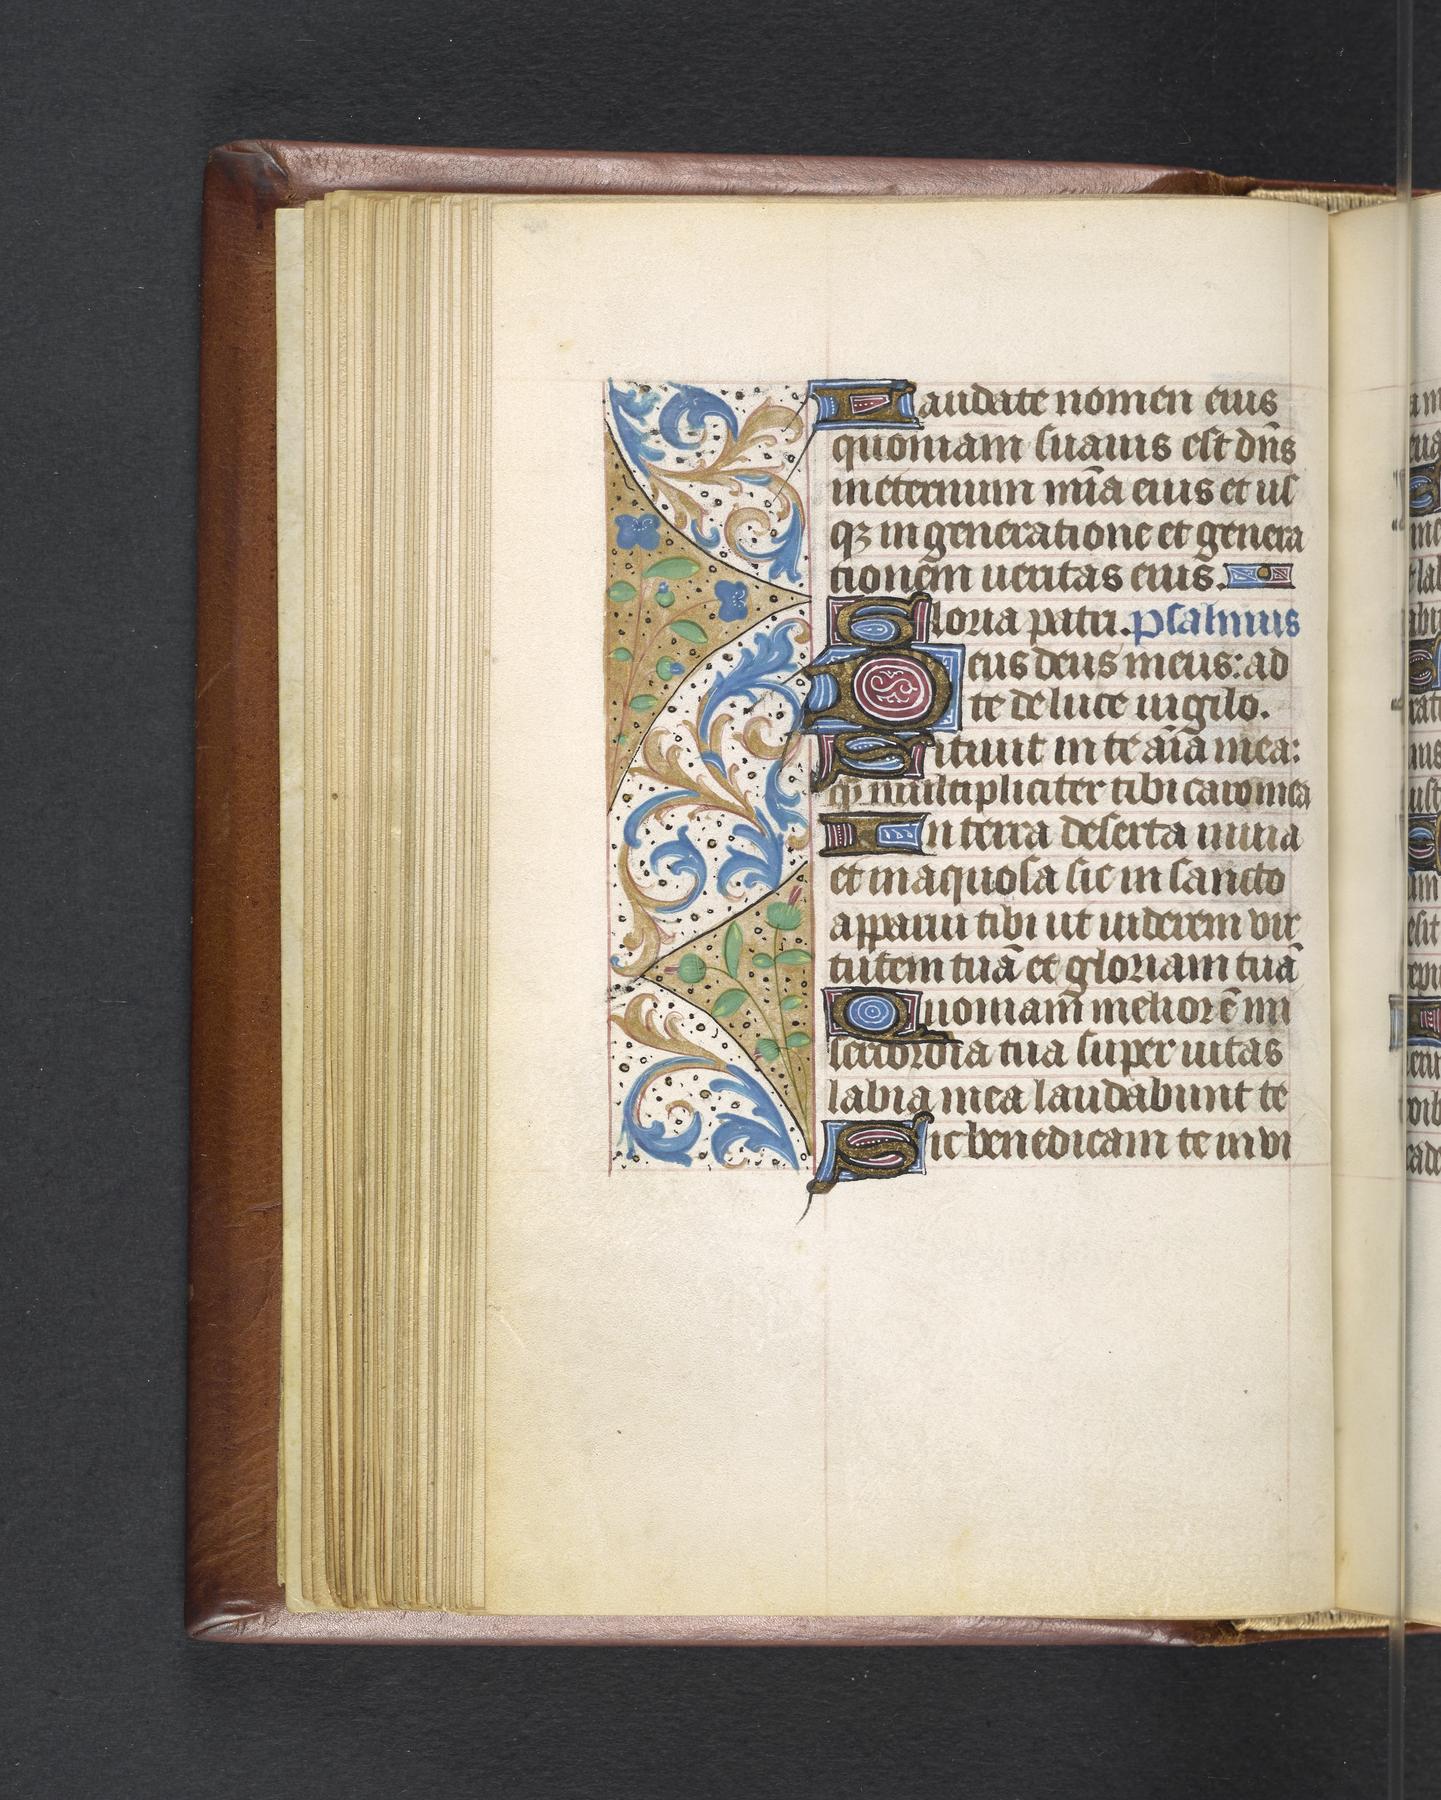 Laudate nomen eius
quoniam suauis est dn̄s
in eternum mīa eius et us
qꝫ in generatione et genera
tionem ueritas eius.
Gloria patri. psalmus
Deus deus meus: ad
te de luce uigilo.
Sitiuit in te aīa mea:
qͣꝫ multipliciter tibi caro mea
In terra deserta inuia
et inaquosa sic in sancto
apparui tibi ut uiderem vir
tutem tuā et gloriam tuā
Quoniam meliorē mi
sericordia tua super uitas
labia mea laudabunt te
Sic benedicam te in vi